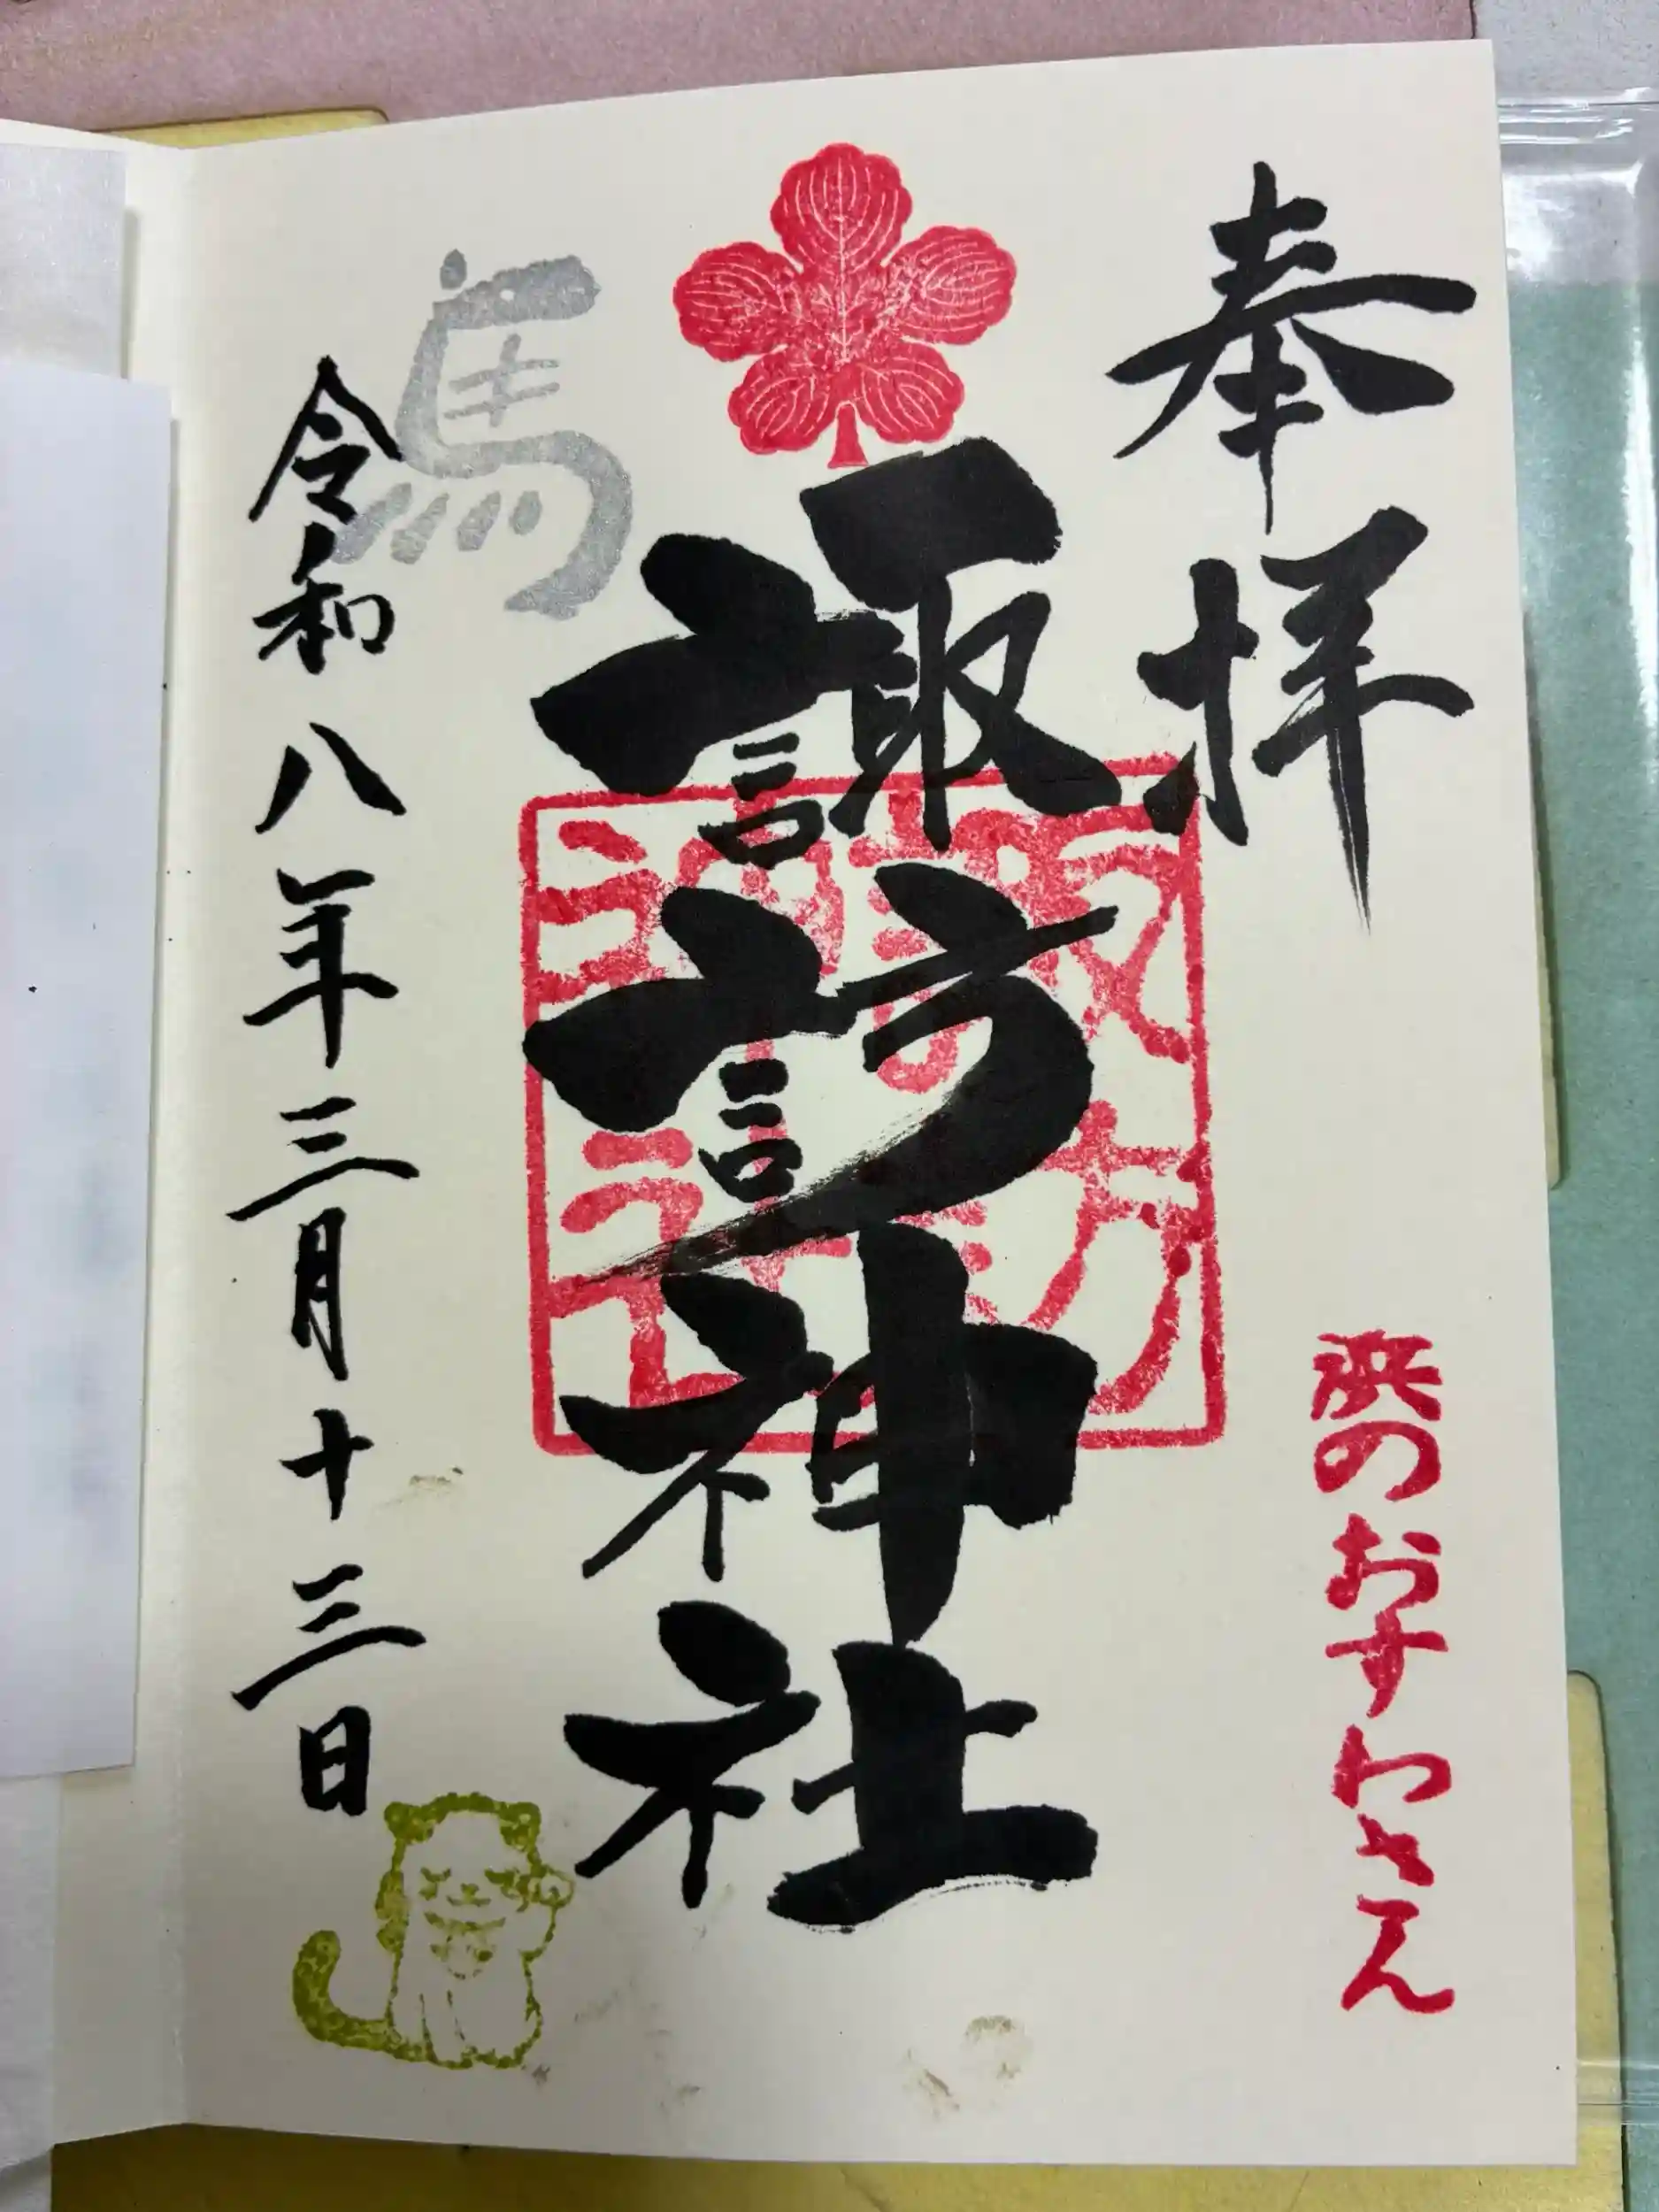 奉拝
浜のおすわさん
諏訪神社
諏訪
神社
馬
令和八年三月十三日